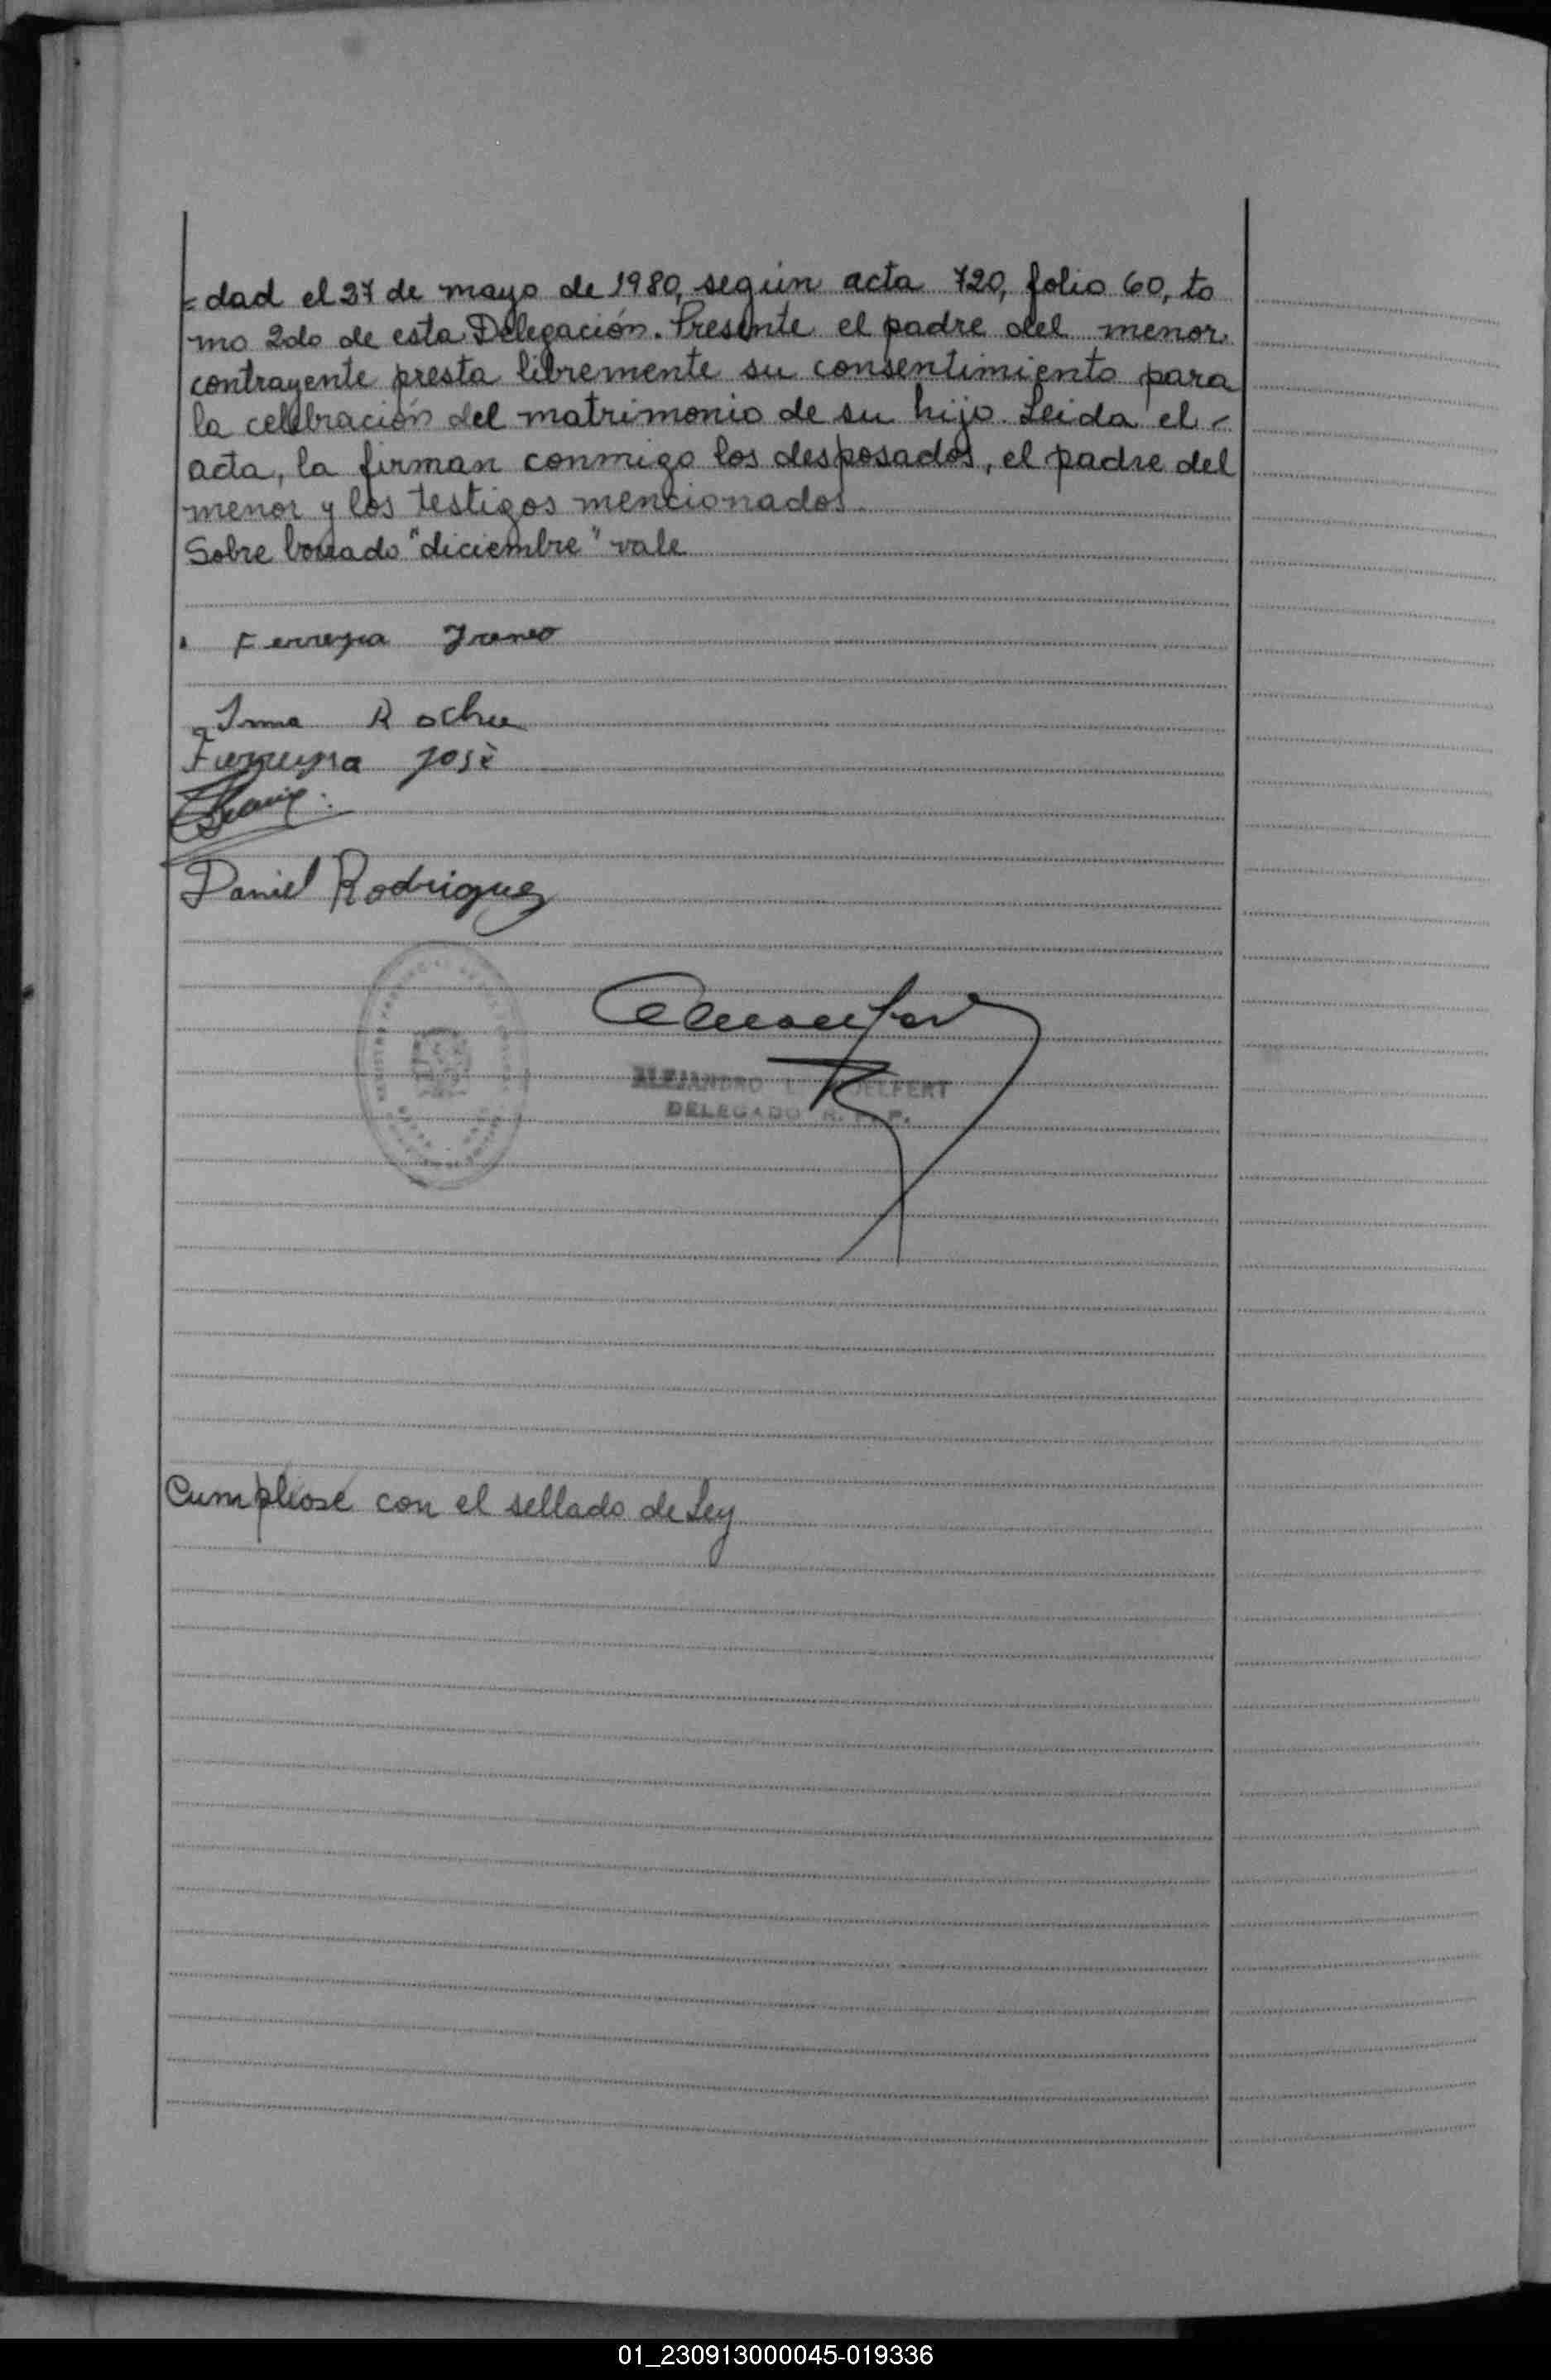 =dad el 27 de mayo de 1980, según acta 720, folio 60, to
mo 2do de esta Delegación. Presente el padre del menor
contrayente presta libremente su consentimiento para
la celebración del matrimonio de su hijo. Leida el -
acta, la firman conmigo los desposados, el padre del
menor y los testigos mencionados.
Sobre borrado "diciembre" vale
Ferreyra
Irma Rocha
Ferreyra José
Daniel Rodriguez
ALEJANDRO
DELEGADO R. P.
Cumpliose con el sellado de Ley
01_230913000045-019336